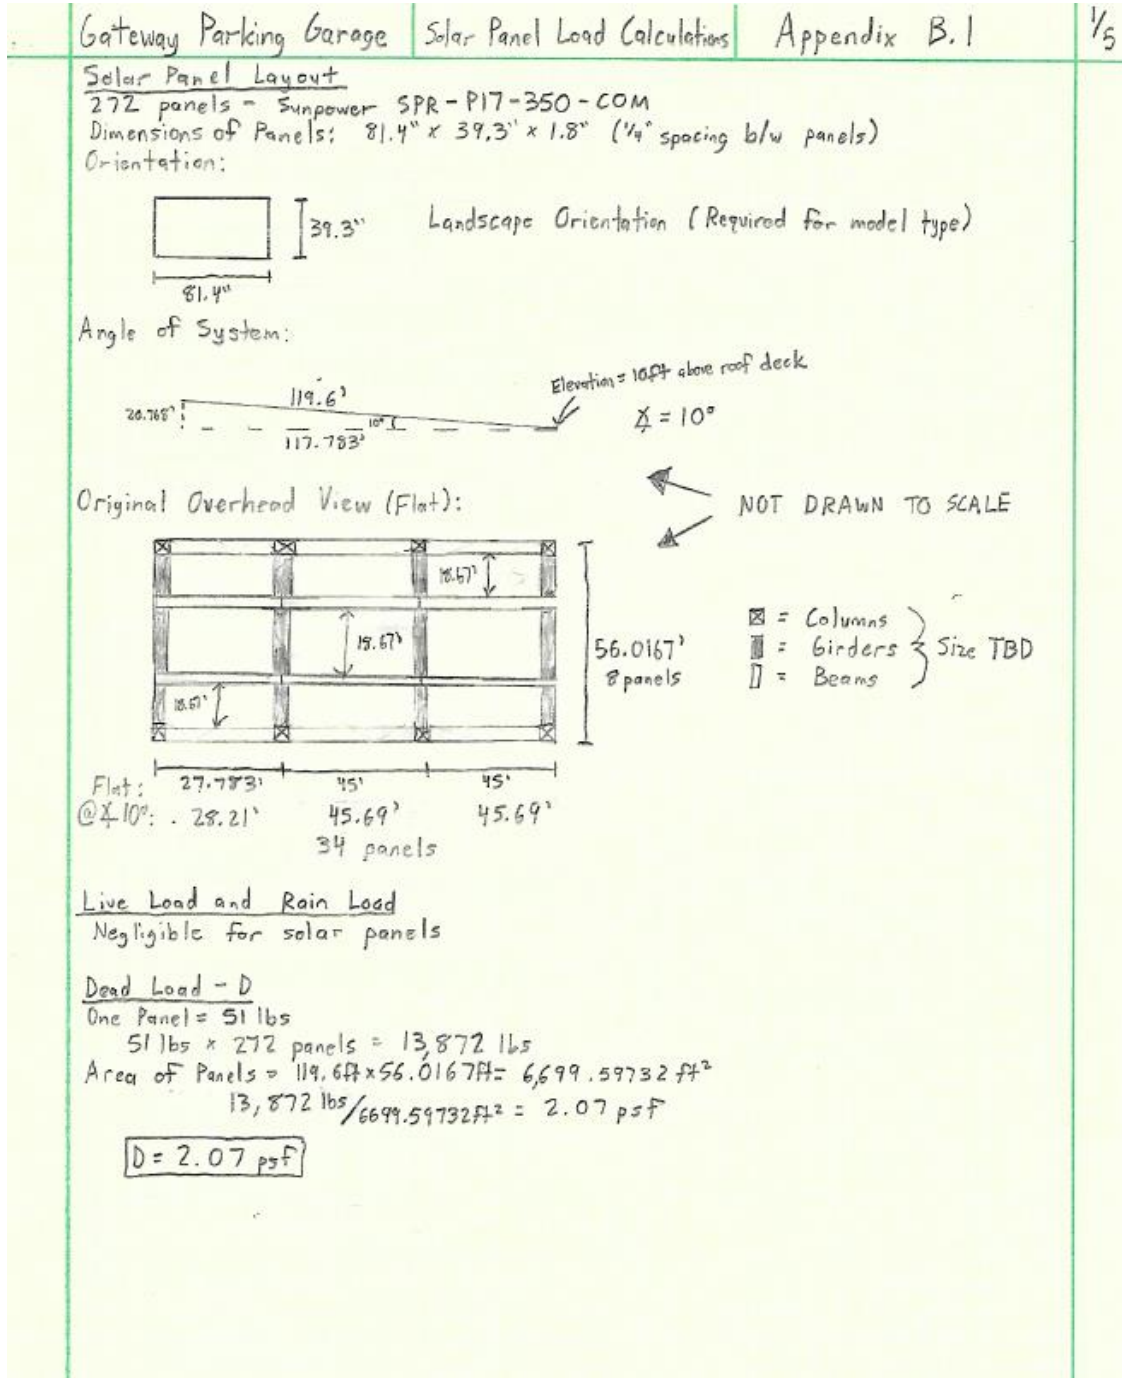 Gateway Parking Garage Solar Panel Load Calculations Appendix B.1 1/5
Solar Panel Layout
272 panels - Sunpower SPR-P17-350-COM
Dimensions of Panels: 81.4" x 39.3" x 1.8" (1/4" spacing b/w panels)
Orientation:
39.3"
Landscape Orientation (Required for model type)
81.4"
Angle of System:
Elevation = 10ft above roof deck
119.6'
20.768'
10°
∡ = 10°
117.783'
Original Overhead View (Flat):
NOT DRAWN TO SCALE
18.67'
= Columns
18.67'
56.0167'
= Girders
Size TBD
8 panels
= Beams
18.67'
Flat: 27.783' 45' 45'
@∡10°: 28.21' 45.69' 45.69'
34 panels
Live Load and Rain Load
Negligible for solar panels
Dead Load - D
One Panel = 51 lbs
51 lbs x 272 panels = 13,872 lbs
Area of Panels = 119.6ft x 56.0167ft = 6,699.59732 ft²
13,872 lbs/6699.59732ft² = 2.07 psf
D = 2.07 psf